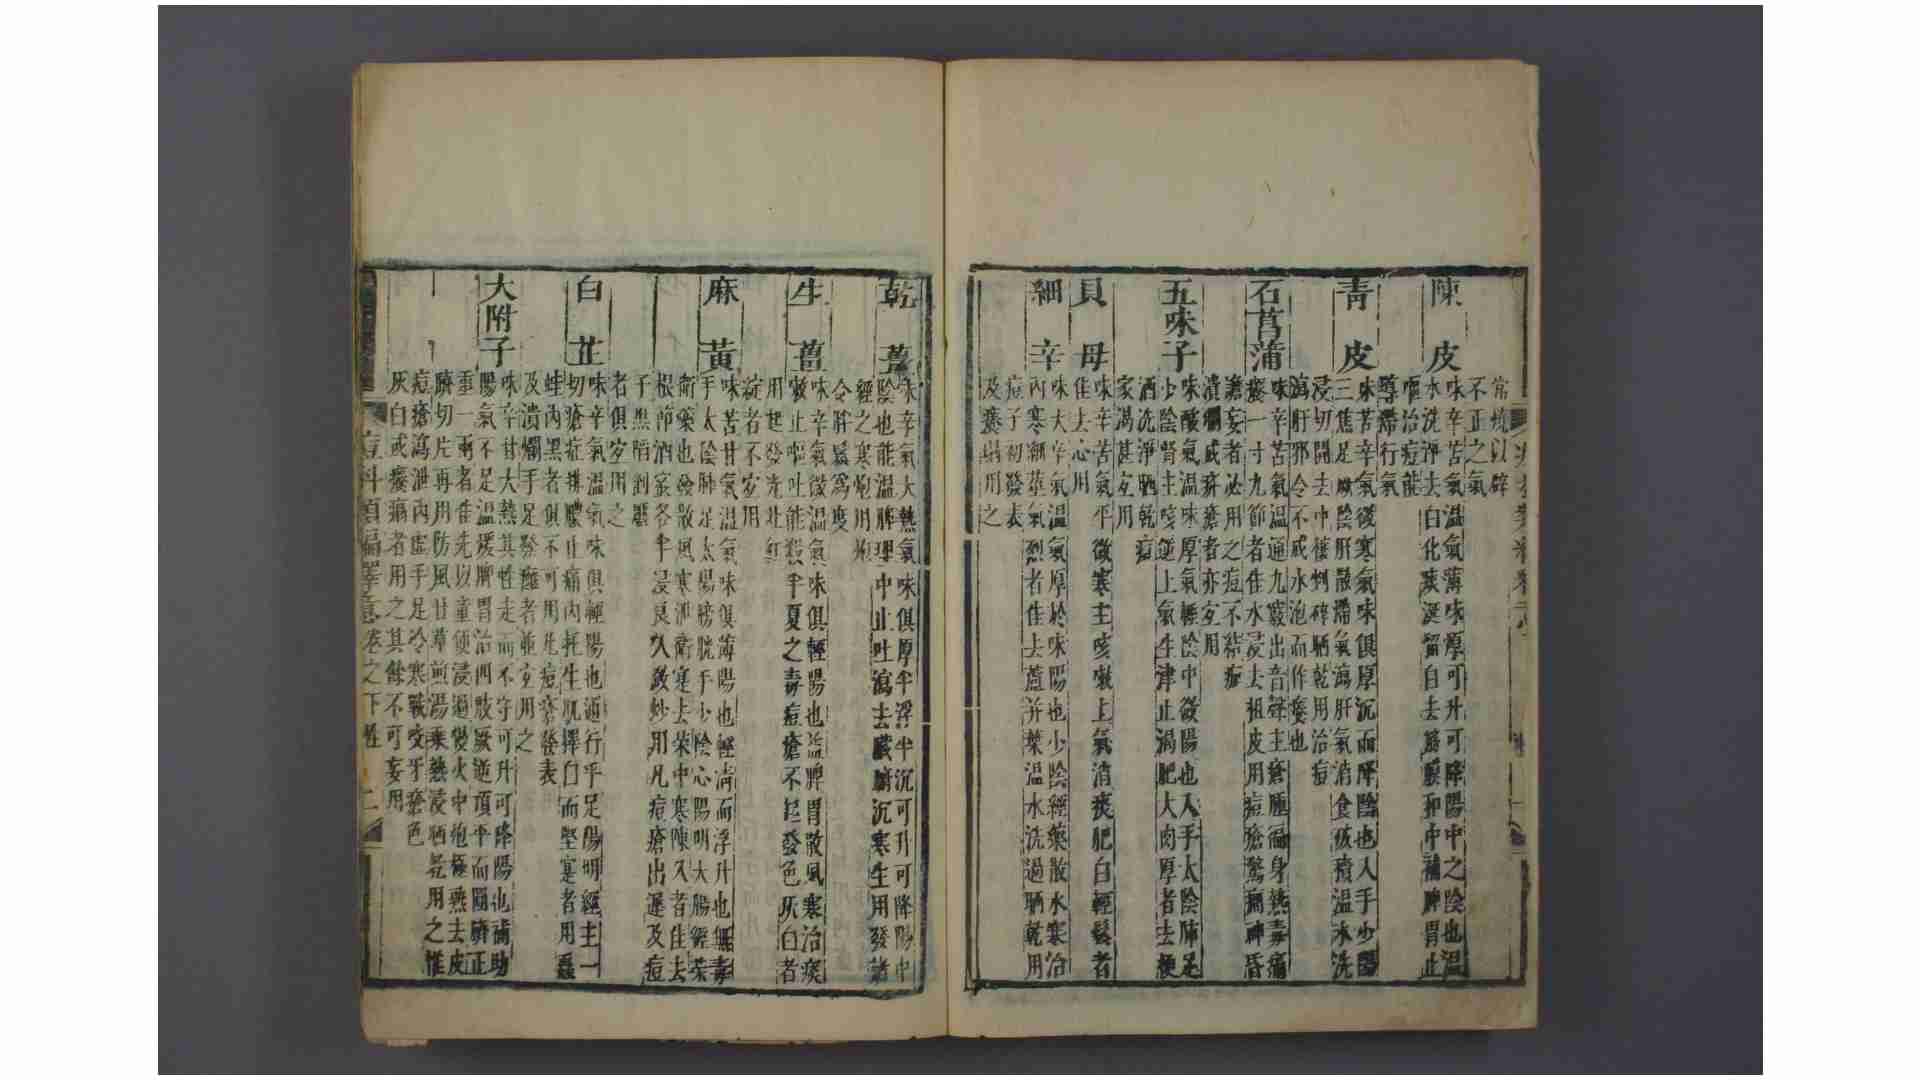 常燒以辟
不正之氣
陳皮
味辛苦氣溫氣薄味厚可升可降陽中之陰也溫
水洗淨去白化痰涎留白去筋膜和中補脾胃止
嘔治痘能
導滯行氣
青皮
味苦辛氣後寒氣味俱厚沉而降陰也入手少陽
三焦足厥陰肝 滯氣瀉肝氣消食破積溫水洗
浸切開去中穰剉碎晒乾用治痘
瀉肝邪令不成水泡而作癢也
石菖蒲
味辛苦氣溫通九竅出音聲主瘡腫徧身熱毒痛
癢一寸九節者佳水浸去粗皮用痘瘡驚癇神昏
譫妄者必用之痘不結痂
潰爛成疥瘡者亦宜用
五味子
味酸氣溫味厚氣輕陰中微陽也入手太陰肺足
少陰腎主咳逆上氣生津止渴肥大肉厚者去梗
酒洗淨晒乾痘
家渴甚宜用
貝母
味辛苦氣平微寒主咳嗽上氣消痰肥白輕鬆者
佳去心用
細辛
味大辛氣溫氣厚於味陽也少陰經藥散水寒治
內寒細莖氣烈者佳去蘆并葉溫水洗過晒乾用
痘子初發表
及癢塌用之
乾薑
味辛氣大熱氣味俱厚半浮半沉可升可降陽中
陰也能溫脾理中止吐瀉去臟腑沉寒生用發諸
經之寒炮用須
令胖鬆為度
生薑
味辛氣微溫氣味俱輕陽也益脾胃散風寒治痰
嗽止嘔吐能殺半夏之毒痘瘡不起發色灰白者
用起發光壯紅
綻者不宜用
麻黃
味苦甘氣溫氣味俱薄陽也輕清而浮升也無毒
手太陰肺足太陽膀胱手少陰心陽明大腸經榮
衛藥也發散風寒泄衛寔去榮中寒陳久者佳去
根節酒蜜各半浸良久 炒用凡痘瘡出遲及痘
子黑陷剥 
者俱宜用之
白芷
味辛氣溫氣味俱輕陽也通行手足陽明經主一
切瘡症排膿止痛內托生肌擇白而堅寔者用蟲
蛀內黑者俱不可用凡痘瘡發表
及潰爛手足發癰者並宜用之
大附子
味辛甘大熱其性走而不守可升可降陽也補助
陽氣不足溫煖脾胃治四肢厥逆頂平而圓臍正
重一兩者佳先以童便浸過慢火中炮極熟去皮
臍切片再用防風甘草煎湯乘熱浸晒乾用之惟
痘瘡瀉泄內虛手足冷寒戰咬牙瘡色
灰白或癢癟者用之其餘不可妄用
痘科類編釋意卷之下